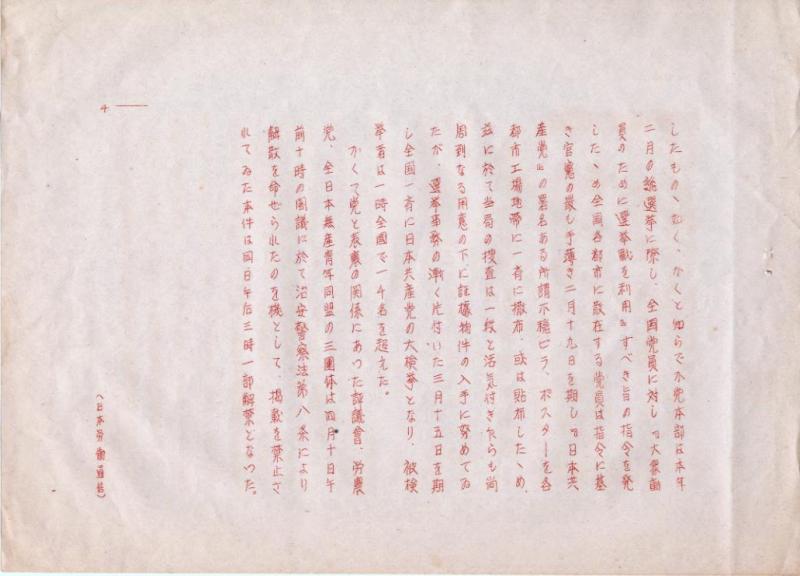 したものゝ如く、かくと知らでか党本部は本年
二月の総選挙に際し、全国党員に対し『大衆動
員のために選挙戦を利用』すべき旨の指令を発
したゝめ全国各都市に散在する党員は指令に基
き官憲の最も手薄き二月十九日を期し『日本共
産党』の署名ある所謂不穏ビラ、ポスターを各
都市工場地帯に一斉に撒布、或は貼布したゝめ、
茲に於て当局の捜査は一段と活気付きたらも尚
周到なる用意の下に証據物件の入手に努めてゐ
たが、選挙事務の漸く片付いた三月十五日を期
し全国一斉に日本共産党の大検挙となり、被検
挙者は一時全国で一千名を超えた。
かくて党と表裏の関係にあつた評議會、労農
党、全日本無産青年同盟の三團体は四月十日午
前十時の閣議に於て治安警察法第八条により
解散を命ぜられたのを機として、掲載を禁止さ
れてゐた本件は同日午后三時一部解禁となつた。
(日本労働通信)
4